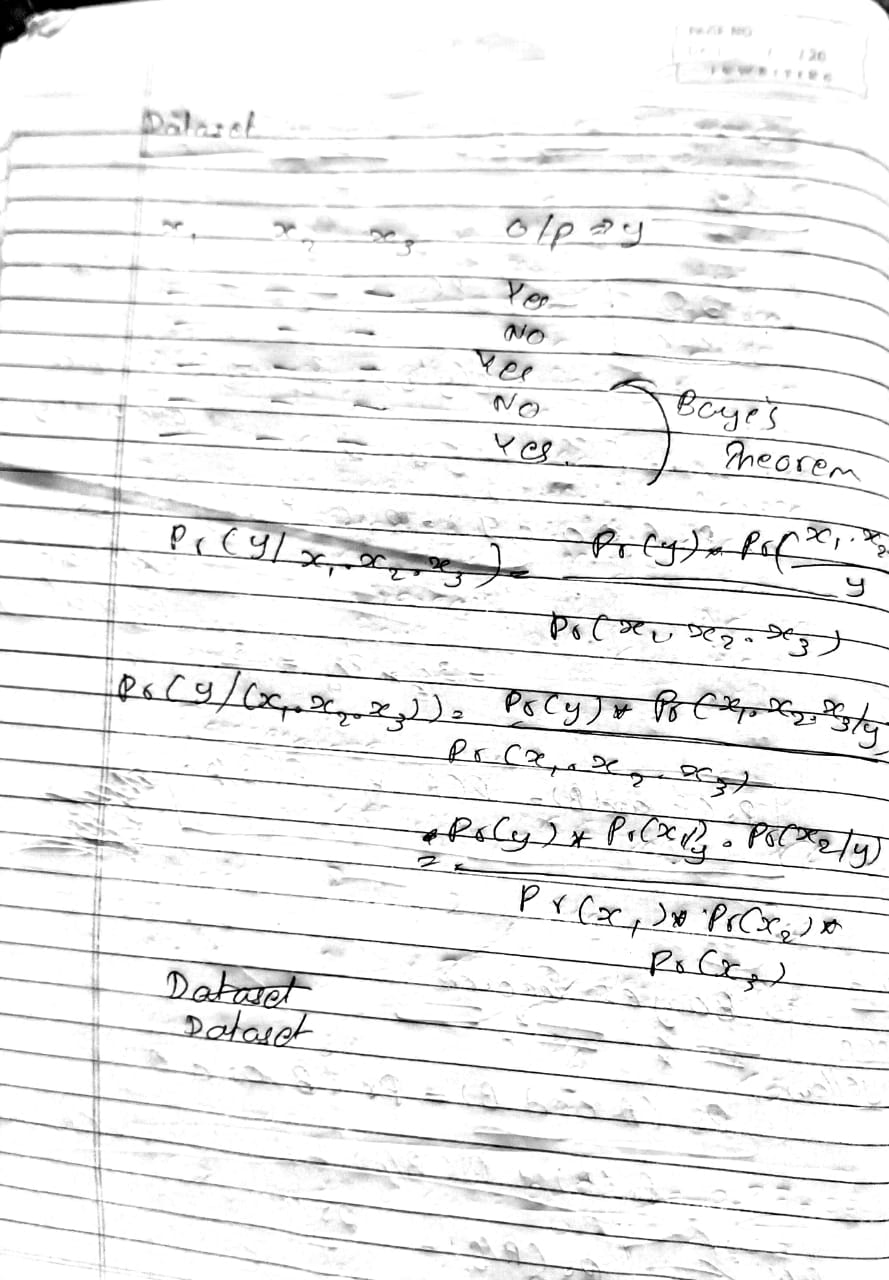 PAGE NO
Dataset
x₁ x₂ x₃ o/p ⇒ y
- - - Yes
- - - NO
- - - Yes
- - - NO
- - - Yes.
Baye's
Theorem
Pr(y/x₁.x₂.x₃) = Pr(y) * Pr(x₁.x₂
y
Pr(x₁, x₂.x₃)
Pr(y/(x₁.x₂.x₃)) = Pr(y) * Pr(x₁.x₂.x₃/y)
Pr(x₁.x₂.x₃)
= Pr(y) * Pr(x₁/y) . Pr(x₂/y)
Pr(x₁) * Pr(x₂) *
Pr(x₃)
Dataset
Dataset